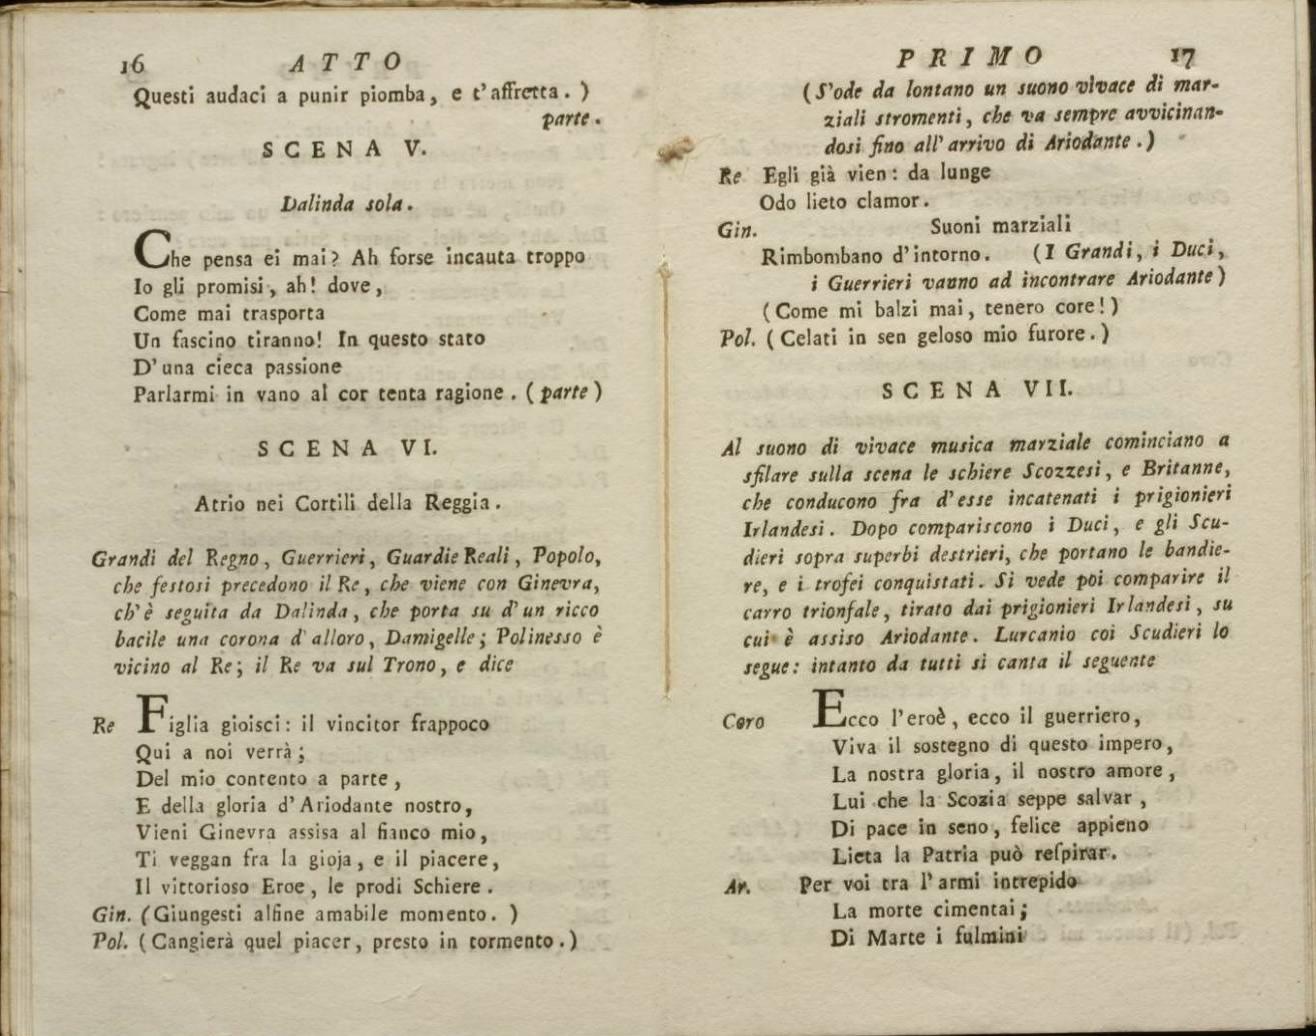 16 ATTO
Questi audaci a punir piomba, e t'affretta. )
parte.
SCENA V.
Dalinda sola.
Che pensa ei mai? Ah forse incauta troppo
Io gli promisi, ah! dove,
Come mai trasporta
Un fascino tiranno! In questo stato
D'una cieca passione
Parlarmi in vano al cor tenta ragione. (parte)
SCENA VI.
Atrio nei Cortili della Reggia.
Grandi del Regno, Guerrieri, Guardie Reali, Popolo,
che festosi precedono il Re, che viene con Ginevra,
ch'è seguita da Dalinda, che porta su d'un ricco
bacile una corona d'alloro, Damigelle; Polinesso è
vicino al Re; il Re va sul Trono, e dice
Re Figlia gioisci: il vincitor frappoco
Qui a noi verrà;
Del mio contento a parte,
E della gloria d'Ariodante nostro,
Vieni Ginevra assisa al fianco mio,
Ti veggan fra la gioja, e il piacere,
Il vittorioso Eroe, le prodi Schiere.
Gin. (Giungesti alfine amabile momento. )
Pol. (Cangierà quel piacer, presto in tormento.)
PRIMO 17
(S'ode da lontano un suono vivace di mar-
ziali stromenti, che va sempre avvicinan-
dosi fino all'arrivo di Ariodante.)
Re Egli già vien: da lunge
Odo lieto clamor.
Gin. Suoni marziali
Rimbombano d'intorno. (I Grandi, i Duci,
i Guerrieri vanno ad incontrare Ariodante)
(Come mi balzi mai, tenero core!)
Pol. (Celati in sen geloso mio furore.)
SCENA VII.
Al suono di vivace musica marziale cominciano a
sfilare sulla scena le schiere Scozzesi, e Britanne,
che conducono fra d'esse incatenati i prigionieri
Irlandesi. Dopo compariscono i Duci, e gli Scu-
dieri sopra superbi destrieri, che portano le bandie-
re, e i trofei conquistati. Si vede poi comparire il
carro trionfale, tirato dai prigionieri Irlandesi, su
cui è assiso Ariodante. Lurcanio coi Scudieri lo
segue: intanto da tutti si canta il seguente
Coro Ecco l'eroè, ecco il guerriero,
Viva il sostegno di questo impero,
La nostra gloria, il nostro amore,
Lui che la Scozia seppe salvar,
Di pace in seno, felice appieno
Lieta la Patria può reſpirar.
Ar. Per voi tra l'armi intrepido
La morte cimentai;
Di Marte i fulmini